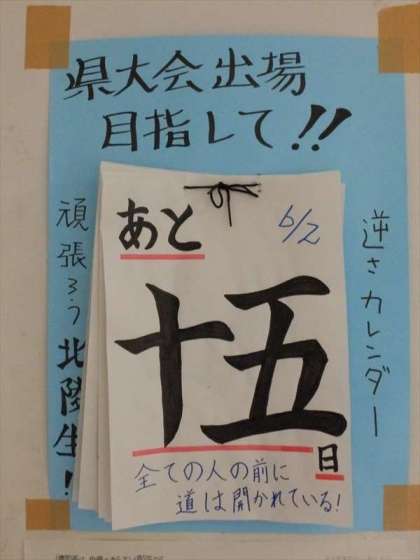 県大会出場
目指して!!
逆さカレンダー
頑張ろう北陸生!
あと
6/2
十五
日
全ての人の前に
道は開かれている!